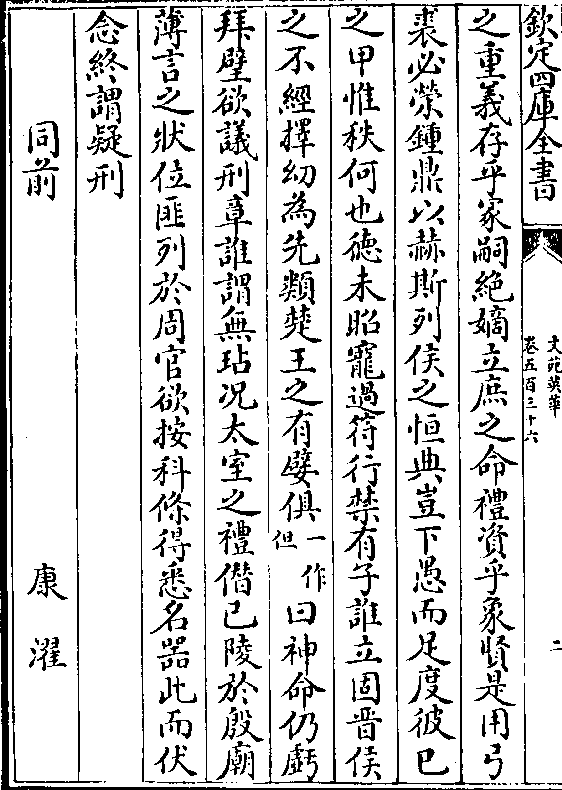 欽定四庫全書
文苑英華
卷五百三十六
二
之重義存乎家嗣絶嫡立庶之命禮資乎象賢是用弓
裘必榮鍾鼎以赫斯列侯之恒典豈下愚而足度彼巳
之甲惟秩何也徳未昭寵過符行禁有子誰立固晋侯
之不經擇幼為先類楚王之有嬖俱一作但曰神命仍虧
拜壁欲議刑章誰謂無玷况太室之禮僭已陵於殷廟
薄言之狀位匪列於周官欲按科條得悉名器此而伏
念終謂疑刑
同前
康濯